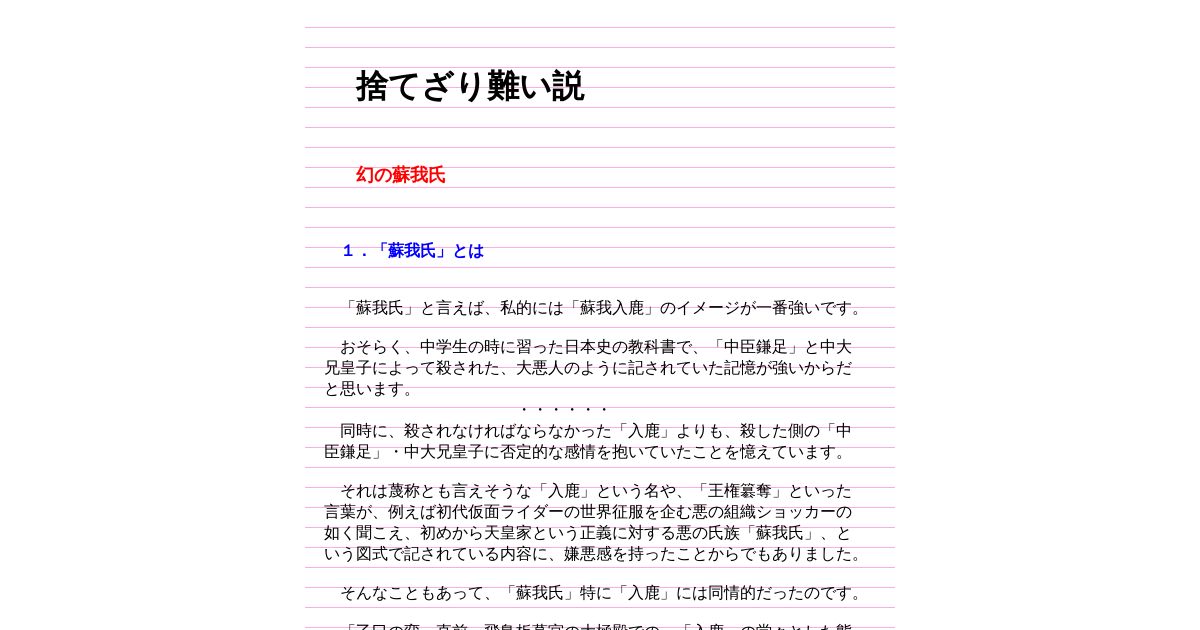 捨てざり難い説
幻の蘇我氏
１．「蘇我氏」とは
「蘇我氏」と言えば、私的には「蘇我入鹿」のイメージが一番強いです。
おそらく、中学生の時に習った日本史の教科書で、「中臣鎌足」と中大
兄皇子によって殺された、大悪人のように記されていた記憶が強いからだ
と思います。
・・・・・・
同時に、殺されなければならなかった「入鹿」よりも、殺した側の「中
臣鎌足」・中大兄皇子に否定的な感情を抱いていたことを憶えています。
それは蔑称とも言えそうな「入鹿」という名や、「王権簒奪」といった
言葉が、例えば初代仮面ライダーの世界征服を企む悪の組織ショッカーの
如く聞こえ、初めから天皇家という正義に対する悪の氏族「蘇我氏」、と
いう図式で記されている内容に、嫌悪感を持ったことからでもありました。
そんなこともあって、「蘇我氏」特に「入鹿」には同情的だったのです。